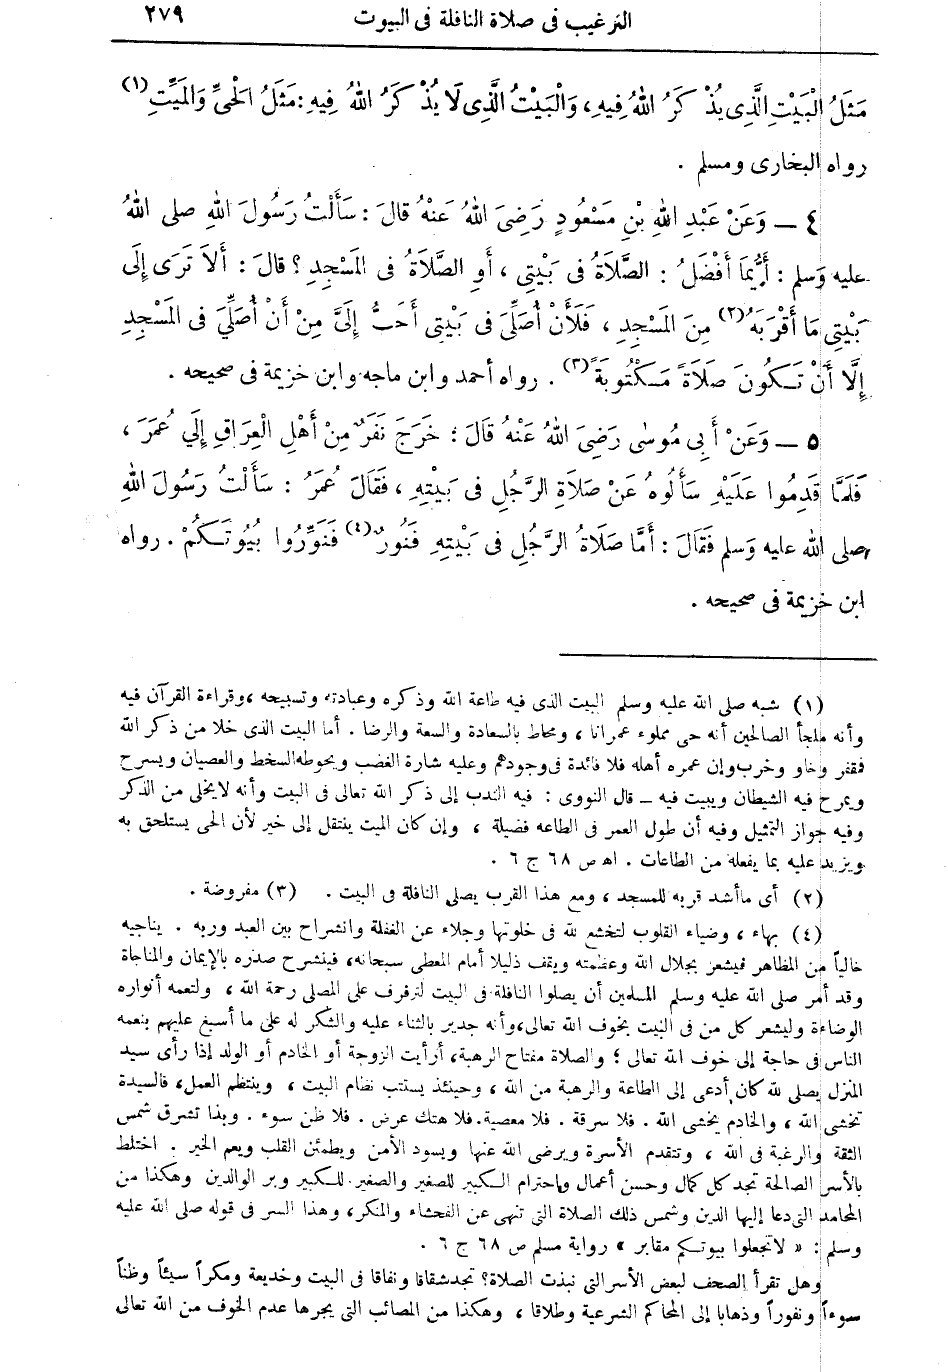 الترغيب فى صلاة النافلة فى البيوت ٢٧٩
مَثَلُ الْبَيْتِ الَّذِى يُذْكَرُ اللهُ فِيهِ، وَالْبَيْتُ الَّذِى لَا يُذْكَرُ اللهُ فِيهِ: مَثَلُ الْحَىِّ وَالْمَيِّتِ (١)
رواه البخارى ومسلم .
٤ — وَعَنْ عَبْدِ اللهِ بْنِ مَسْعُودٍ رَضِىَ اللهُ عَنْهُ قَالَ : سَأَلْتُ رَسُولَ اللهِ صلى اللهُ
عليه وَسلم : أَيُّمَا أَفْضَلُ : الصَّلَاةُ فى بَيْتِى ، أَوِ الصَّلَاةُ فى المَسْجِدِ ؟ قالَ : أَلَا تَرَى إِلَى
بَيْتِى مَا أَقْرَبَهُ (٢) مِنَ المَسْجِدِ ، فَلَأَنْ أُصَلِّىَ فى بَيْتِى أَحَبُّ إِلَىَّ مِنْ أَنْ أُصَلِّىَ فى المَسْجِدِ
إِلَّا أَنْ تَكُونَ صَلَاةً مَكْتُوبَةً (٣) . رواه أحمد وابن ماجه وابن خزيمة فى صحيحه .
٥ — وَعَنْ أَبِى مُوسَى رَضِىَ اللهُ عَنْهُ قَالَ : خَرَجَ نَفَرٌ مِنْ أَهْلِ الْعِرَاقِ إِلَي عُمَرَ ،
فَلَمَّا قَدِمُوا عَلَيْهِ سَأَلُوهُ عَنْ صَلَاةِ الرَّجُلِ فى بَيْتِهِ ، فَقَالَ عُمَرُ : سَأَلْتُ رَسُولَ اللهِ
صلى الله عليه وَسلم فَقَالَ : أَمَّا صَلَاةُ الرَّجُلِ فى بَيْتِهِ فَنُورٌ (٤) فَنَوِّرُوا بُيُوتَكُمْ . رواه
ابن خزيمة فى صحيحه .
(١) شبه صلى الله عليه وسلم البيت الذى فيه طاعة الله وذكره وعبادته وتسبيحه ، وقراءة القرآن فيه
وأنه ملجأ الصالحين أنه حى مملوء عمرانا ، ومحاط بالسعادة والسعة والرضا . أما البيت الذى خلا من ذكر الله
فمقفر وخاو وخرب وإن عمره أهله فلا فائدة فى وجودهم وعليه شارة الغضب ويحوطه السخط والعصيان ويسرح
ويمرح فيه الشيطان ويبيت فيه — قال النووى : فيه الندب إلى ذكر الله تعالى فى البيت وأنه لايخلى من الذكر
وفيه جواز التمثيل وفيه أن طول العمر فى الطاعه فضيلة ، وإن كان الميت ينتقل إلى خير لأن الحى يستلحق به
ويزيد عليه بما يفعله من الطاعات . اه ص ٦٨ ج ٦ .
(٢) أى ماأشد قربه للمسجد ، ومع هذا القرب يصلى النافلة فى البيت . (٣) مفروضة .
(٤) بهاء ، وضياء القلوب لتخشع لله فى خلوتها وجلاء عن الغفلة وانشراح بين العبد وربه . يناجيه
خالياً من المظاهر فيشعر بجلال الله وعظمته ويقف ذليلا أمام المعطى سبحانه، فينشرح صدره بالإيمان والمناجاة
وقد أمر صلى الله عليه وسلم المسلمين أن يصلوا النافلة فى البيت لترفرف على المصلى رحمة الله ، ولتعمه أنواره
الوضاءة وليشعر كل من فى البيت بخوف الله تعالى، وأنه جدير بالثناء عليه والشكر له على ما أسبغ عليهم بنعمه
الناس فى حاجة إلى خوف الله تعالى ؛ والصلاة مفتاح الرهبة، أرأيت الزوجة أو الخادم أو الولد إذا رأى سيد
المنزل يصلى لله كان أدعى إلى الطاعة والرهبة من الله ، وحينئذ يستتب نظام البيت ، وينتظم العمل، فالسيدة
تخشى الله ، والخادم يخشى الله . فلا سرقة . فلا معصية. فلا هتك عرض . فلا ظن سوء . وبذا تشرق شمس
الثقة والرغبة فى الله ، وتتقدم الأسرة ويرضى الله عنها ويسود الأمن ويطمئن القلب ويعم الخير . اختلط
بالأسر الصالحة تجد كل كمال وحسن أعمال واحترام الكبير للصغير والصغير للكبير وبر الوالدين وهكذا من
المحامد التى دعا إليها الدين وشمس ذلك الصلاة التى تنهى عن الفحشاء والمنكر، وهذا السر فى قوله صلى الله عليه
وسلم : « لاتجعلوا بيوتكم مقابر » رواية مسلم ص ٦٨ ج ٦ .
وهل تقرأ الصحف لبعض الأسر التى نبذت الصلاة؟ تجد شقاقا ونفاقا فى البيت وخديعة ومكراً سيئاً وظناً
سوءاً ونفوراً وذهابا إلى المحاكم الشرعية وطلاقا ، وهكذا من المصائب التى يجرها عدم الخوف من الله تعالى